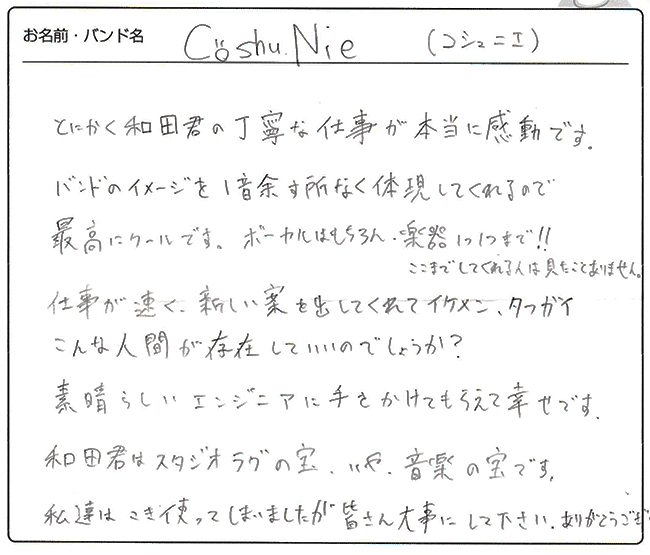 お名前・バンド名 Cöshu.Nie (コシュニエ)
とにかく和田君の丁寧な仕事が本当に感動です。
バンドのイメージを1音余す所なく体現してくれるので
最高にクールです。ボーカルはもちろん・楽器1つ1つまで!!
ここまでしてくれる人は見たことありません。
仕事が速く、新しい案を出してくれてイケメン、タフガイ
こんな人間が存在していいのでしょうか?
素晴らしいエンジニアに手をかけてもらえて幸せです。
和田君はスタジオラグの宝、いや、音楽の宝です。
私達はこき使ってしまいましたが皆さん大事にして下さい、ありがとうござ